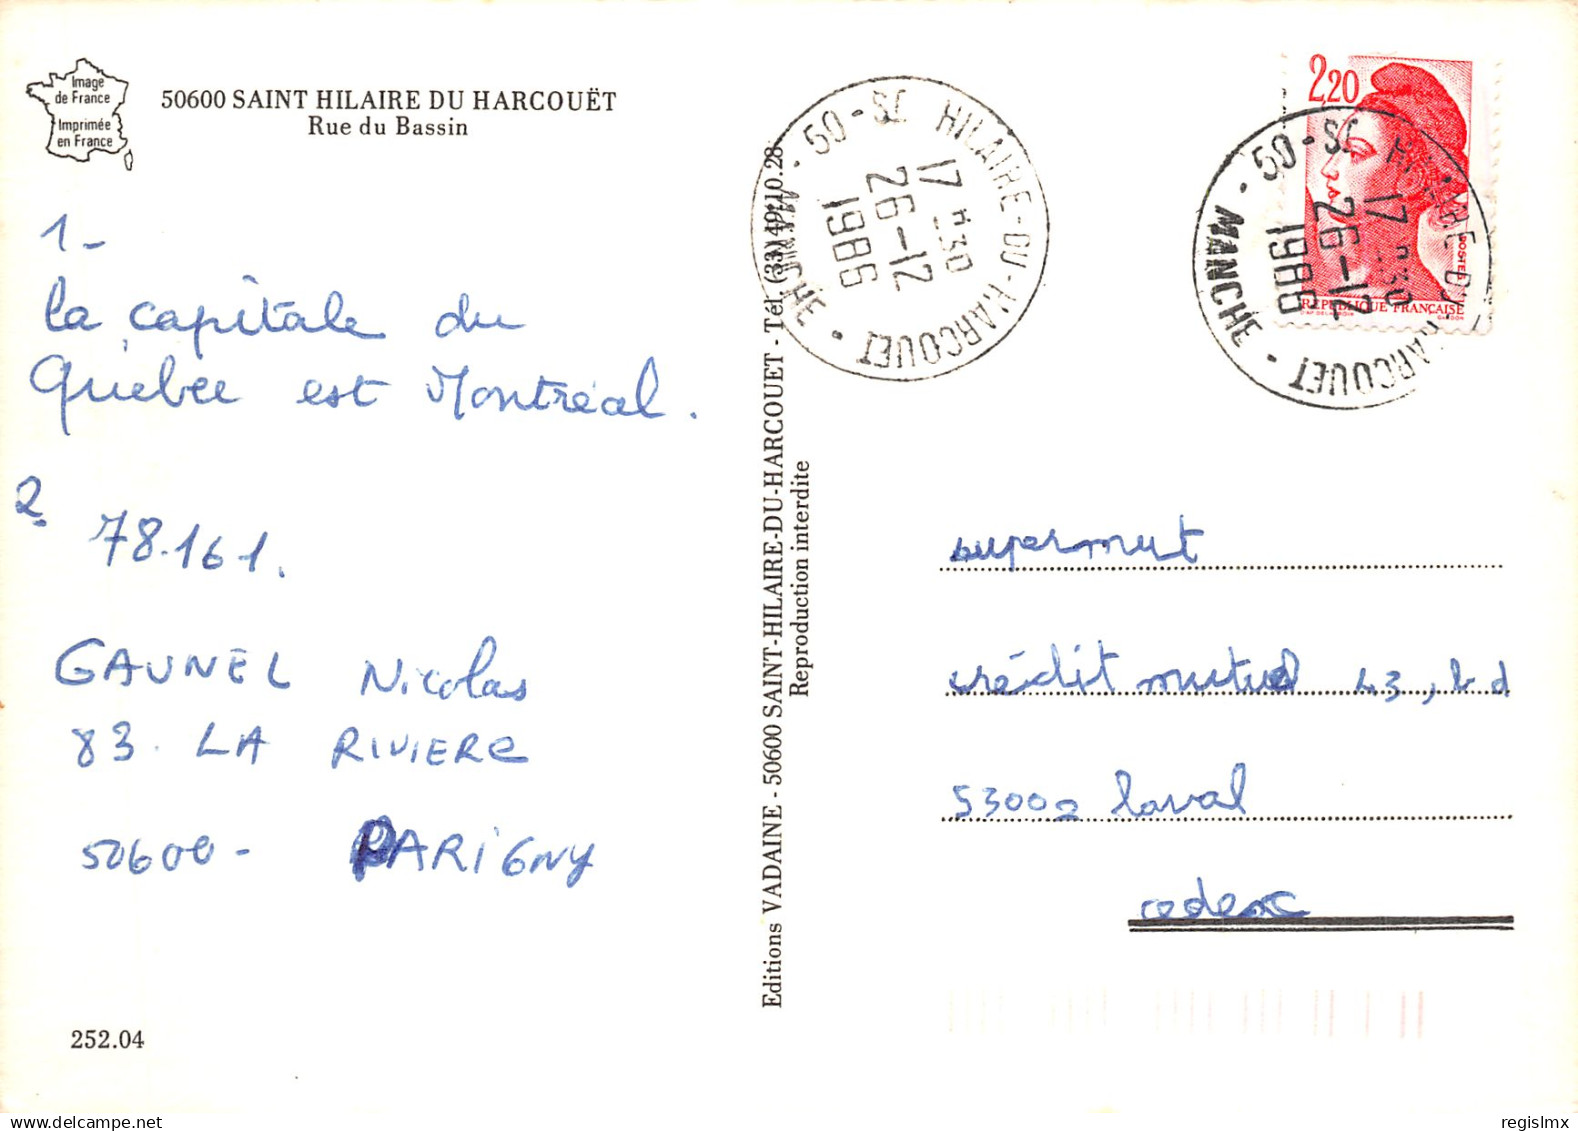 Image
de France
Imprimée
en France
50600 SAINT HILAIRE DU HARCOUËT
Rue du Bassin
1-
la capitale du
Québec est Montréal.
2
78.161.
GAUNEL Nicolas
83. LA RIVIERE
50600 - PARIGNY
252.04
Editions VADAINE - 50600 SAINT-HILAIRE-DU-HARCOUET - Tél. (33) 49.10.28
Reproduction interdite
50 - ST HILAIRE-DU-HARCOUET · MANCHE ·
17 H 30
26-12
1986
2,20
POSTES
RÉPUBLIQUE FRANÇAISE
50 - ST HILAIRE-DU-HARCOUET · MANCHE ·
17 H 30
26-12
1986
supermut
crédit mutuel 43, bd
53002 laval
cedex
regislmx